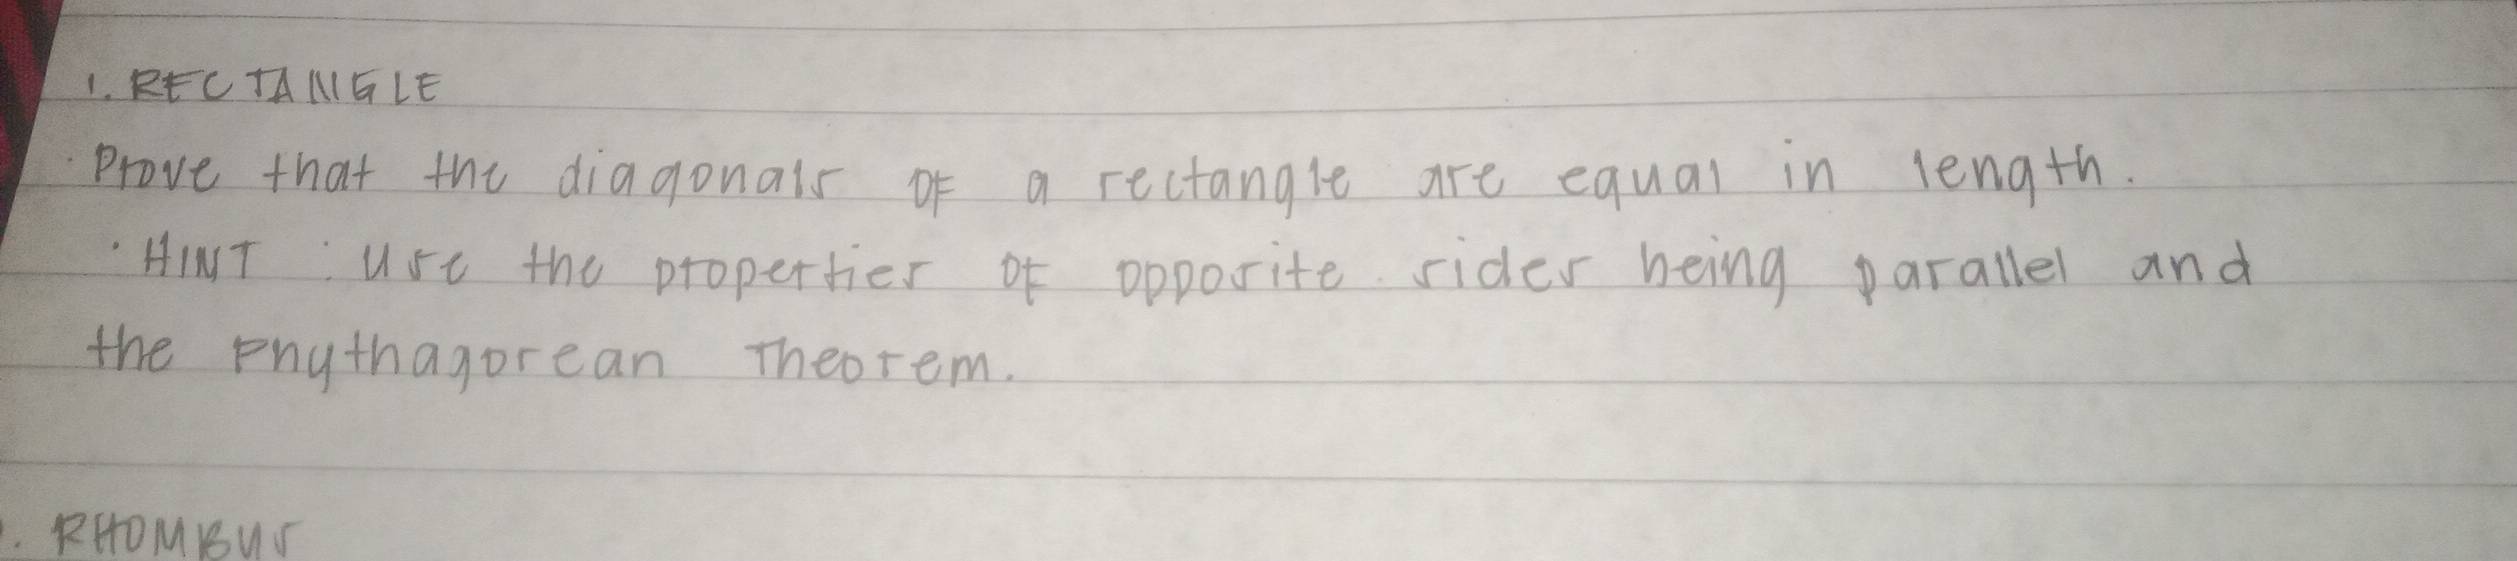 1. RECTANGLE
· Prove that the diagonals of a rectangle are equal in length.
· HINT : Use the properties of opposite sides being parallel and
the Phythagorean Theorem.
. RHOMBUS